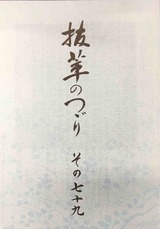 抜萃のつゞり
その七十九